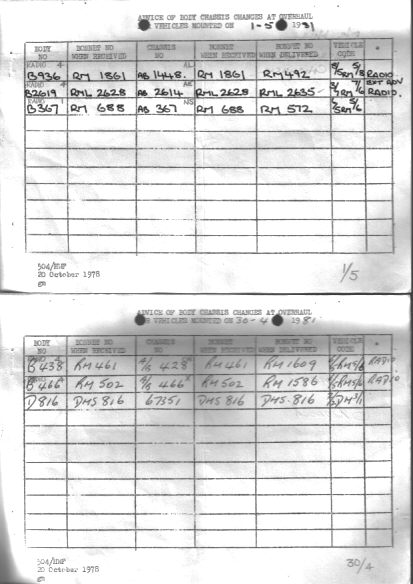 ADVICE OF BODY CHASSIS CHANGES AT OVERHAUL
VEHICLES MOUNTED ON 1-5 1981
BODY NO BONNET NO WHEN RECEIVED CHASSIS NO BONNET NO WHEN RECEIVED BONNET NO WHEN DELIVERED VEHICLE CODE
RADIO 4 AL
B936 RM 1861 AB 1448. RM 1861 RM 492 8/5RM5/8 RADIO
RADIO 4 AE EXT ADV
B2619 RML 2628 AB 2614 RML 2628 RML 2635 RM7/6 RADIO.
RADIO 1 NS
B367 RM 688 AB 367 RM 688 RM 572 5RM5/6
504/HMP
20 October 1978
gm
1/5
ADVICE OF BODY CHASSIS CHANGES AT OVERHAUL
VEHICLES MOUNTED ON 30-4 1981
BODY NO BONNET NO WHEN RECEIVED CHASSIS NO BONNET NO WHEN RECEIVED BONNET NO WHEN DELIVERED VEHICLE CODE
RADIO 4
B438 RM 461 A/B 428 RM 461 RM 1609 RM5/6 RADIO
RADIO 4
B466 RM 502 A/B 466 RM 502 RM 1586 RM5/6 RADIO
D816 DMS 816 67351 DMS 816 DMS. 816 DM3/1
504/HMP
20 October 1978
gm
30/4